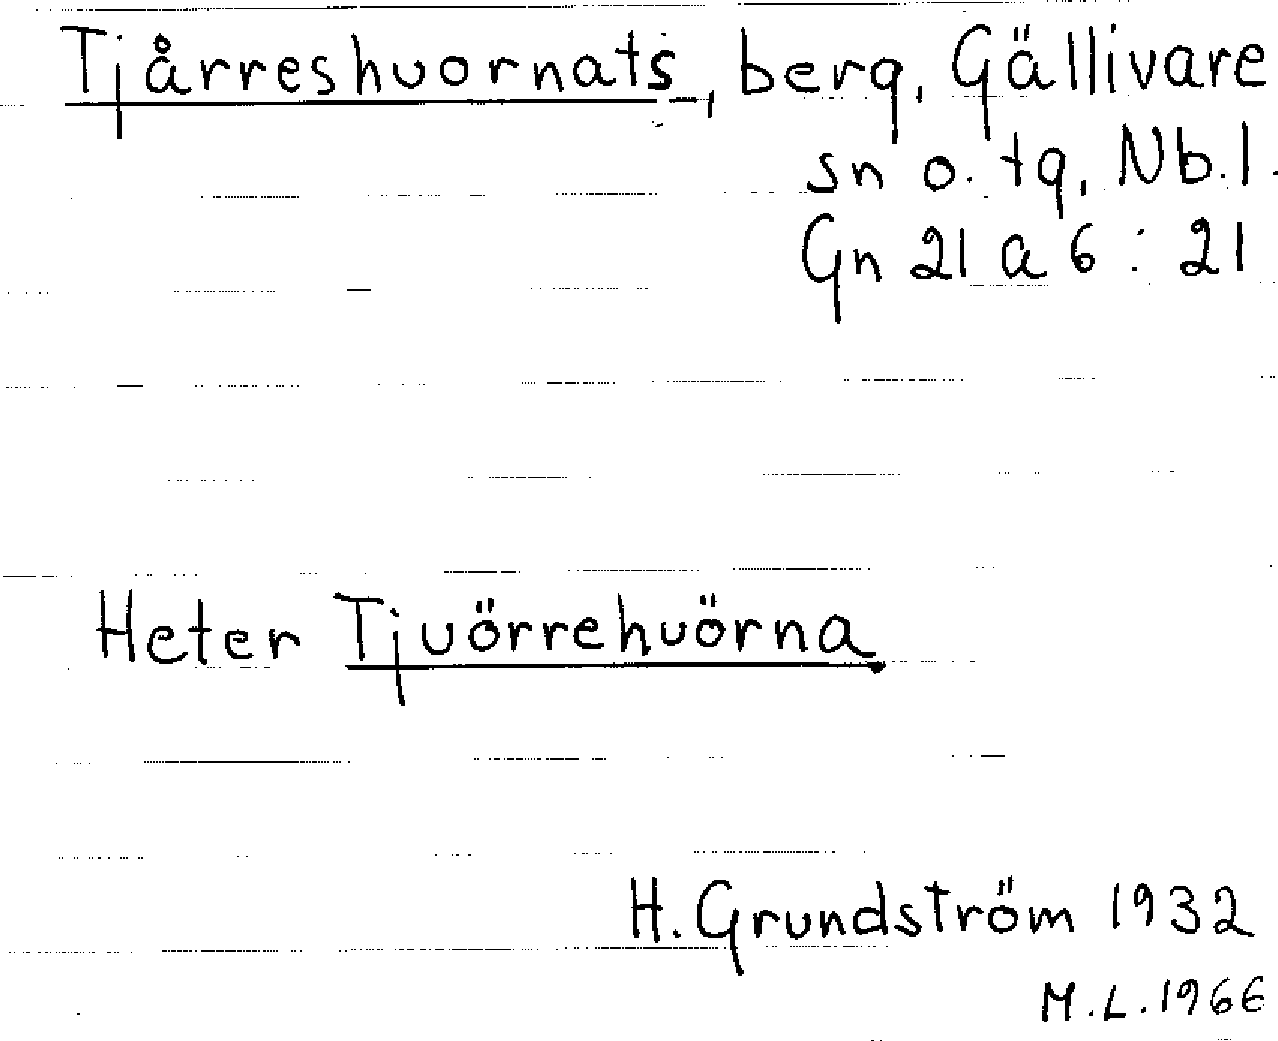 Tjårreshuornats, berg, Gällivare
sn o. tg, Nb.l.
Gn 21 a 6 : 21
Heter Tjuörrehuörna.
H. Grundström 1932
M.L. 1966